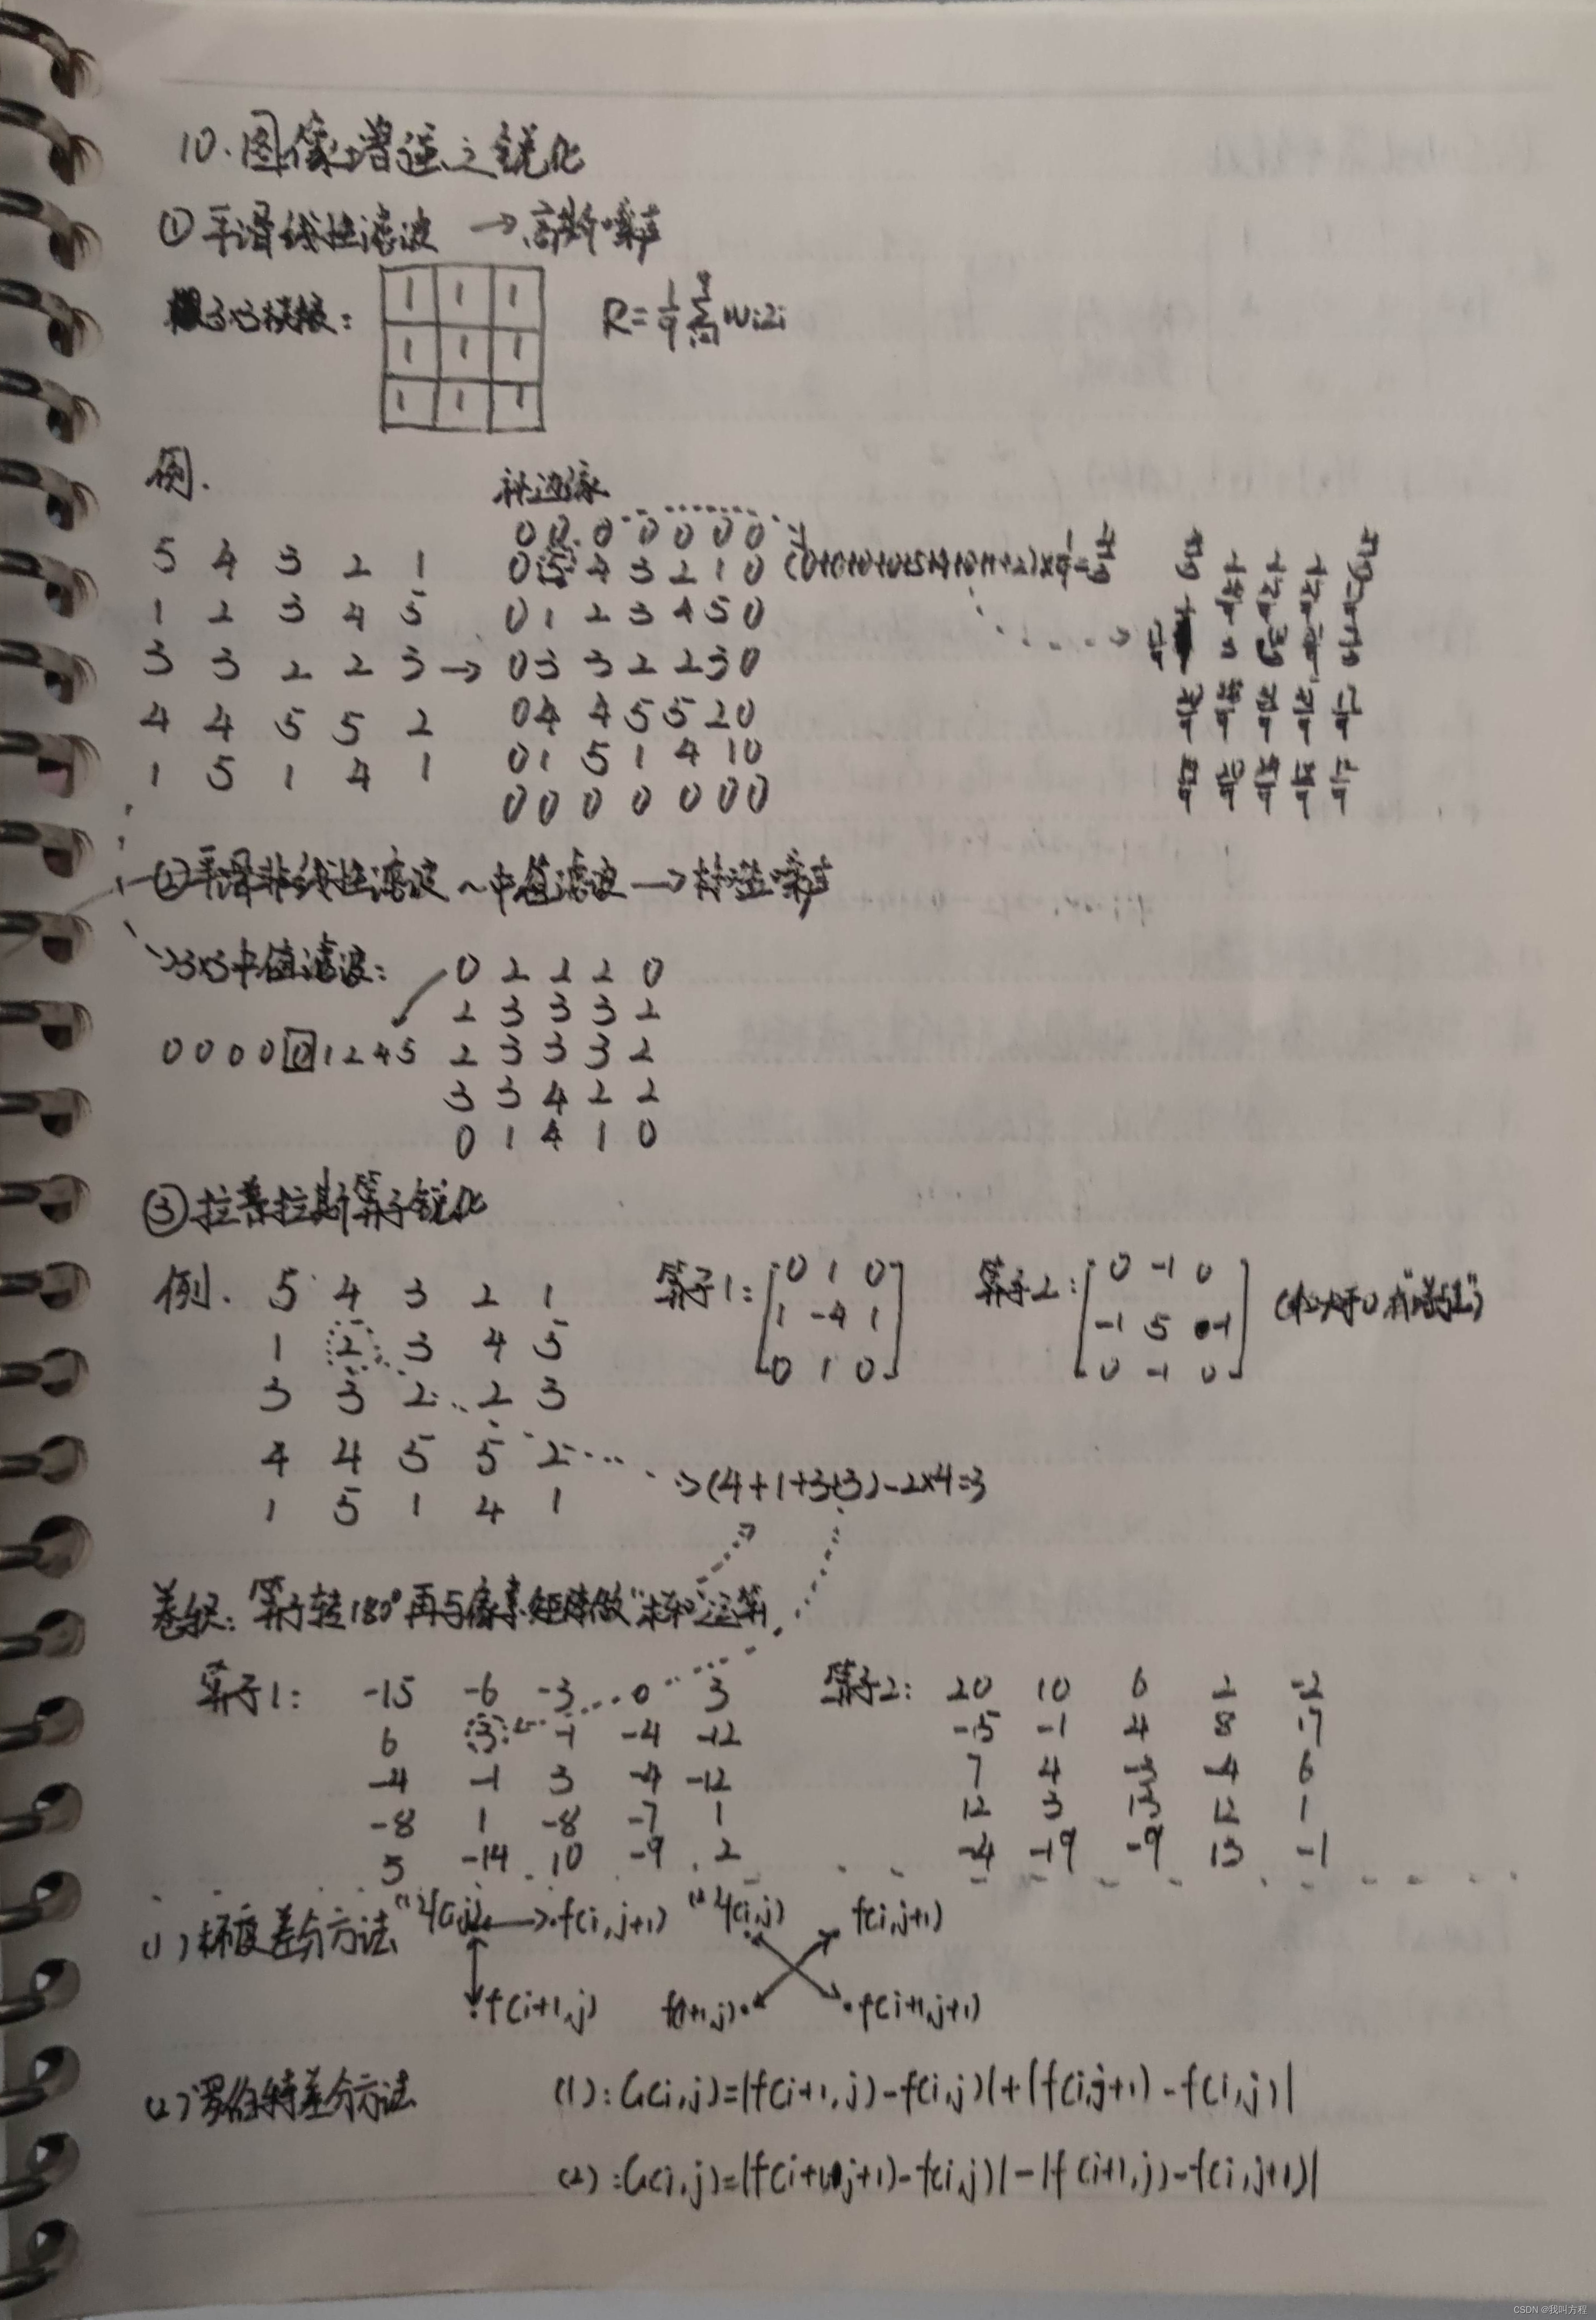 10.图像增强之锐化
①平滑线性滤波 →高斯噪声
3×3模板:
1 1 1
1 1 1
1 1 1
R=1/9 Σ wizi
例.
补边缘
5 4 3 2 1
1 2 3 4 5
3 3 2 2 3 →
4 4 5 5 2
1 5 1 4 1
0 0 0 0 0 0 0
0 5 4 3 2 1 0
0 1 2 3 4 5 0
0 3 3 2 2 3 0
0 4 4 5 5 2 0
0 1 5 1 4 1 0
0 0 0 0 0 0 0
(0+0+0+0+5+4+0+1+2)×1/9=4/3
②平滑非线性滤波~中值滤波→椒盐噪声
3×3中值滤波:
0 0 0 0 0 1 2 4 5
0 2 2 2 0
2 3 3 3 2
2 3 3 3 2
3 3 4 2 2
0 1 4 1 0
③拉普拉斯算子锐化
例. 5 4 3 2 1
1 2 3 4 5
3 3 2 2 3
4 4 5 5 2
1 5 1 4 1
算子1:
0 1 0
1 -4 1
0 1 0
算子2:
0 -1 0
-1 5 -1
0 -1 0
→(4+1+3+3)-2×4=3
卷积:算子转180°再与像素矩阵做"求和"运算
算子1: -15 -6 -3 0 3
6 3 -1 -4 -12
-4 -1 3 -4 -12
-8 1 -8 -7 1
5 -14 10 -9 2
算子2: 20 10 6 2 -2
-5 -1 4 8 17
7 4 -3 -4 6
12 3 13 12 1
-4 -19 -9 13 -1
(1)梯度差分方法
f(i,j) → f(i,j+1)
f(i+1,j)
f(i,j) f(i,j+1)
f(i+1,j) f(i+1,j+1)
(2)罗伯特差分方法
(1):G(i,j)=|f(i+1,j)-f(i,j)|+|f(i,j+1)-f(i,j)|
(2):G(i,j)=|f(i+1,j+1)-f(i,j)|-|f(i+1,j)-f(i,j+1)|
CSDN @我叫方程